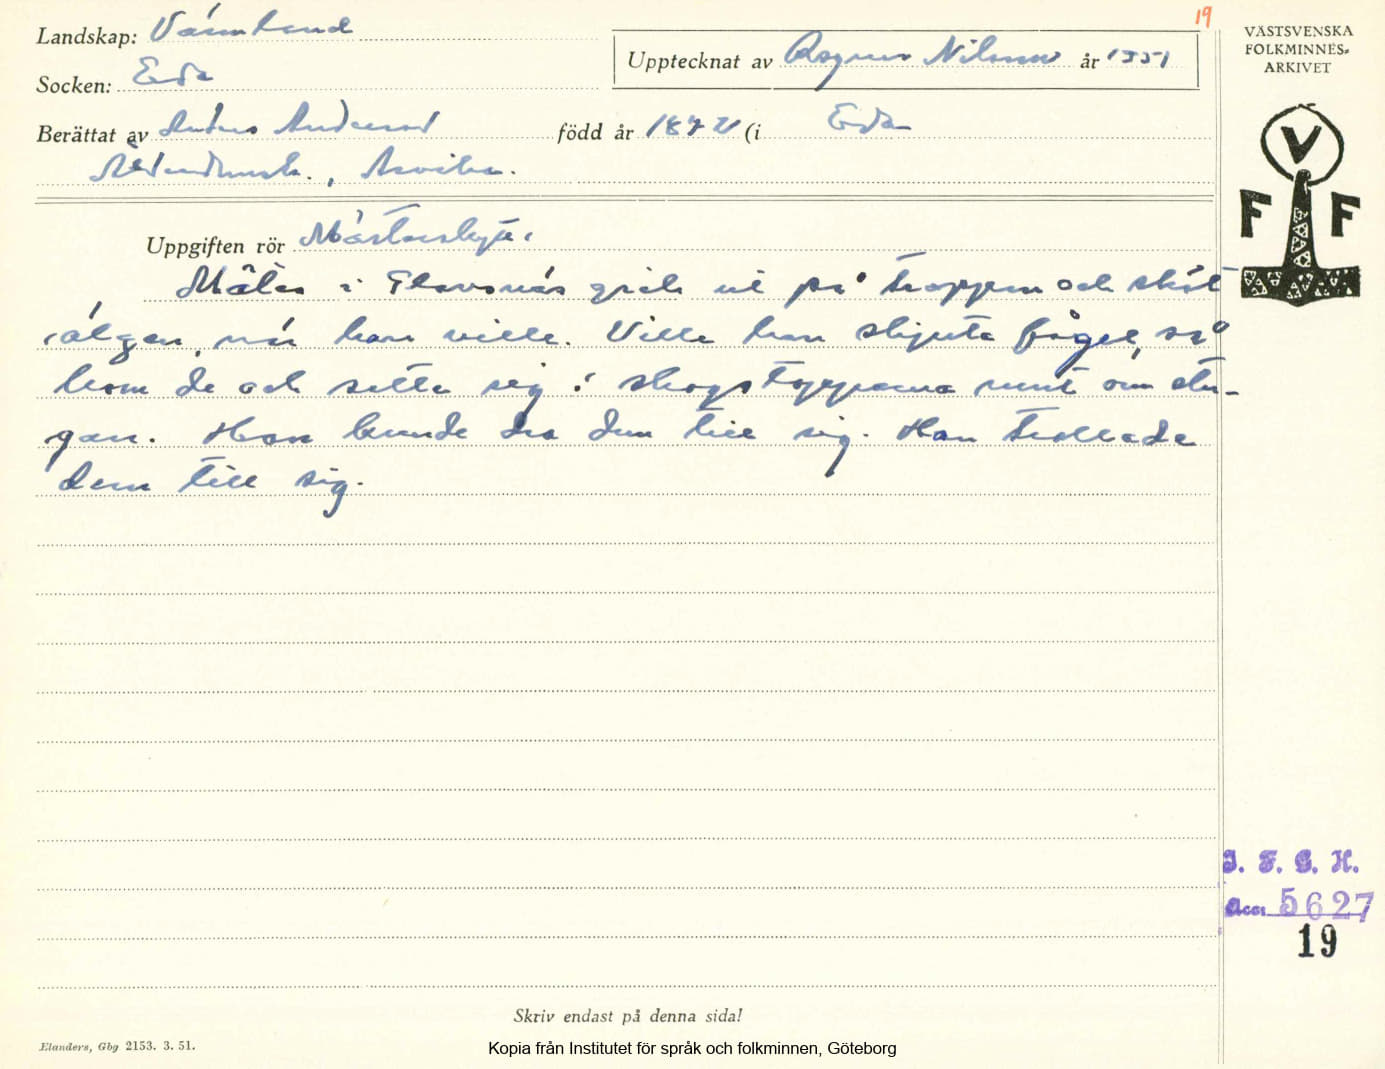 19
Landskap: Värmland
Upptecknat av Ragnar Nilsson år 1951
VÄSTSVENSKA
FOLKMINNES-
ARKIVET
Socken: Eda
Berättat av Anders Andersson född år 1872 (i Eda
Arvika.
V
F F
Uppgiften rör Mästerskytt.
i gick ut på trappen och sköt
älgen, när han ville. Ville han skjuta fågel, så
kom de och satte sig i skogstopparna runt om stu-
gan. Han kunde dra dem till sig. Han trollade
dem till sig.
I. F. G. H.
Acc. 5627
19
Skriv endast på denna sida!
Elanders, Gbg 2153. 3. 51.
Kopia från Institutet för språk och folkminnen, Göteborg